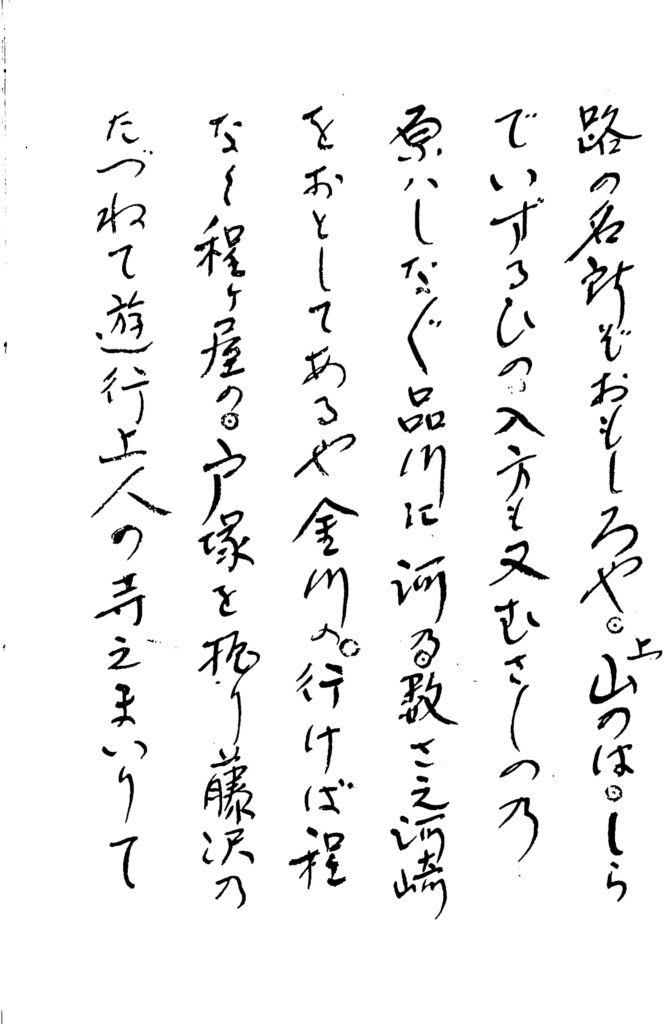 路の名所ぞおもしろや。上山のは。しら
でいずるひの入方も又むさしの乃
原ハしなぐ品川に河る数さえ河崎
をおとしてあるや金川の。行けば程
なく程ヶ屋の。戸塚を	り藤沢乃
たづねて遊行上人の寺之まいりて